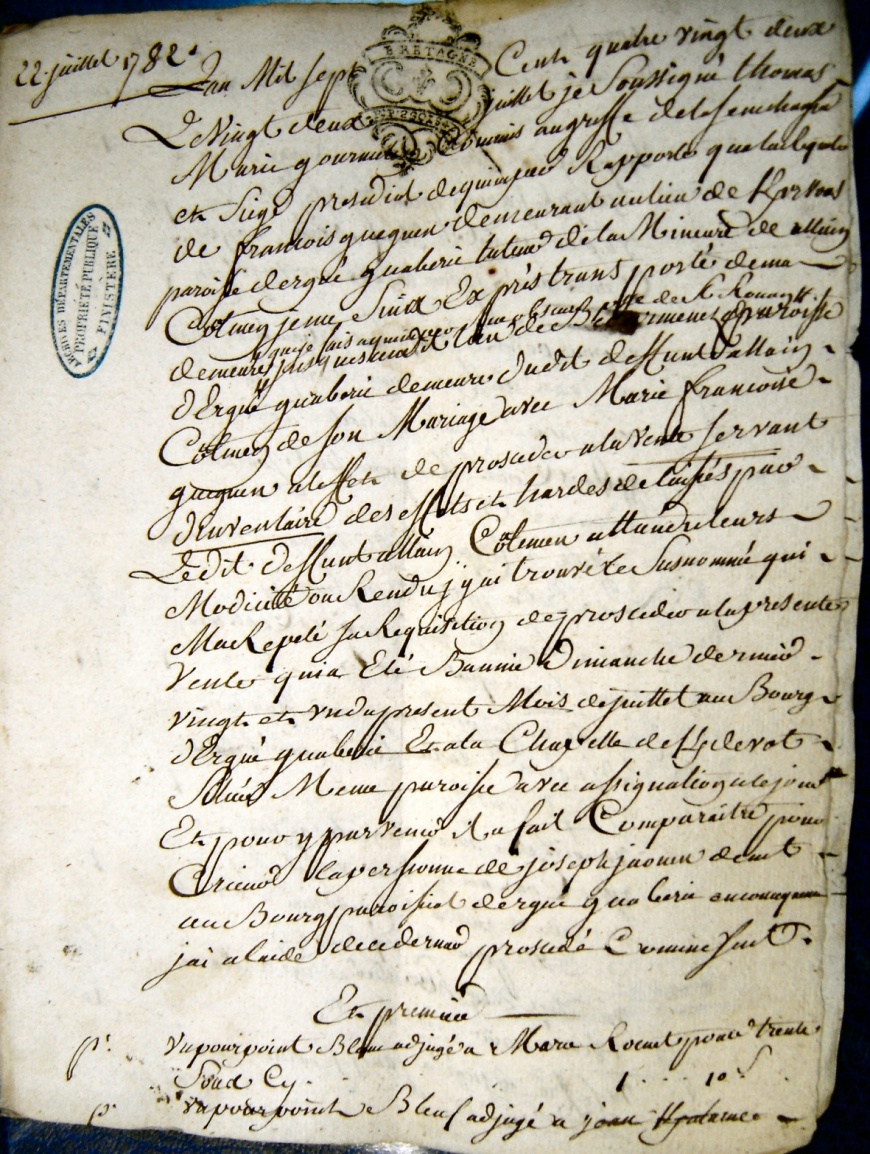 22 juillet 1782.
BRETAGNE
L'an Mil sept Cent quatre vingt deux
Le Vingt deux juillet je Soussigné thomas
Marie gourmel Commis au greffe de la Senechaussée
et Siege presidial de quimper Rapporte qua la Requete
de francois gueguen demeurant au lieu de
paroisse dergué gaberic tuteur de la Mineure de allain
Cotmen je me Suis Exprés transporté de ma
demeure jusques au lieu de paroisse
d'Ergué gaberic demeure dudit deffunt allain
Cotmen de son Mariage avec Marie francoise
gueguen a leffet de proceder a la Vente servant
d'inventaire des effets et hardes de laissés par
Ledit deffunt allain Cotmen attandu leurs
Modicité ou Rendu j'y ai trouvé le Susnommé qui
Ma Repeté sa Requisition de proseder a la presente
Vente qui a Eté Bannie Dimanche dernier
vingt et un du present Mois de juillet au Bourg
d'Ergué gaberic Et a la Chapelle de Kdevot
Meme paroisse avec assignation a ce jour
Et pour y parvenir il a fait Comparaitre pour
Crieur la personne de joseph jaouen demt
au Bourg paroissial dergué gaberic
jai a laide de ce dernier prosedé Comme suit.
Et premier
pr. un pourpoint Blanc adjugé a Marc pour trente
Soux Cy. 1 .... 10 s
pr. un pourpoint Bleu adjugé a jean
ARCHIVES DÉPARTEMENTALES
PROPRIÉTÉ PUBLIQUE
FINISTÈRE